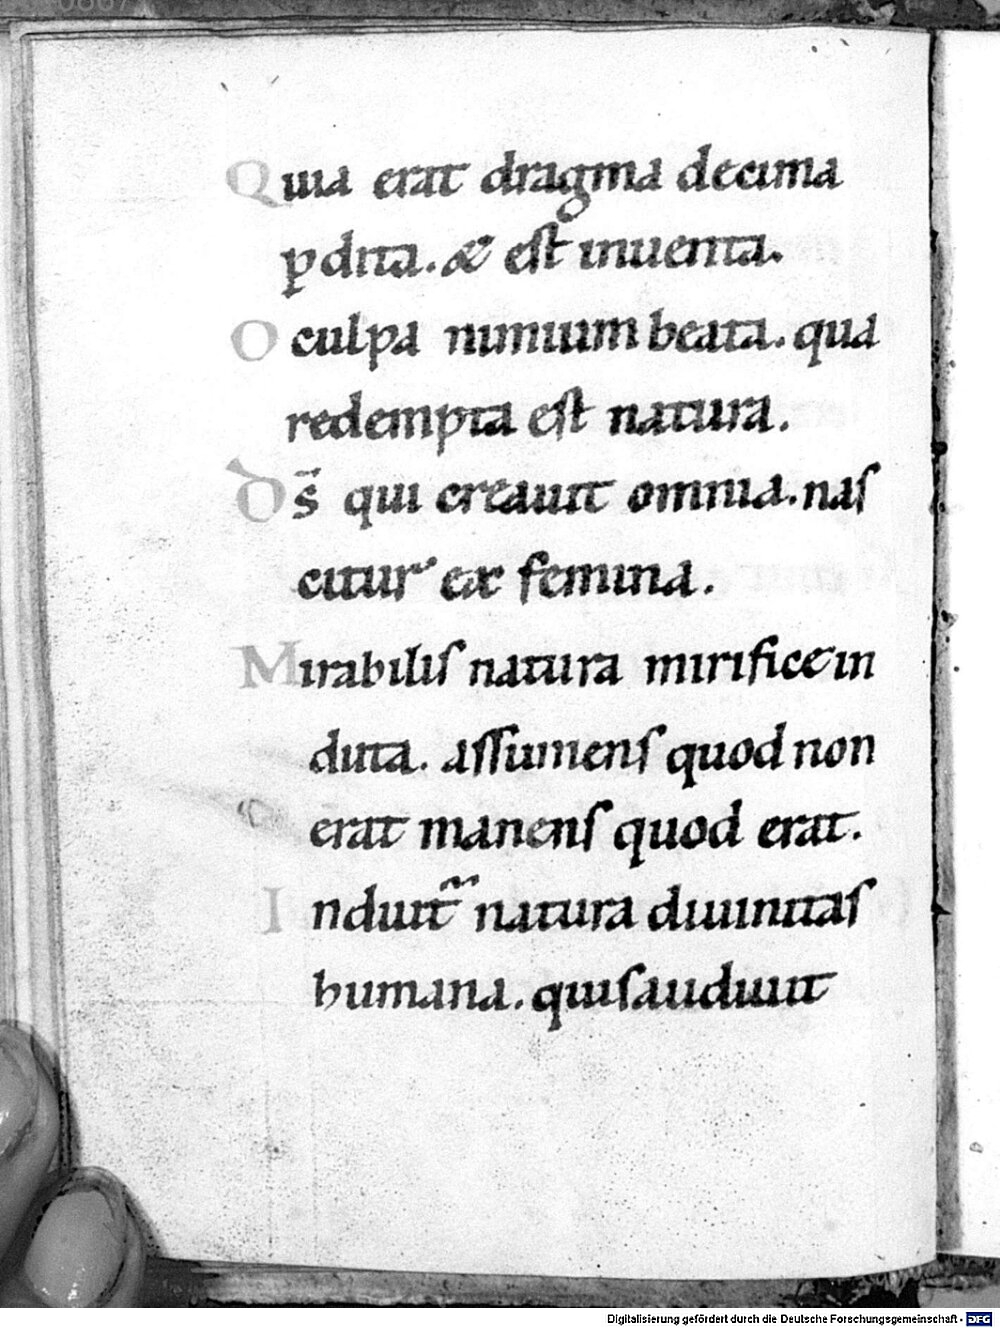 Quia erat dragma decima
ꝑdita. & est inuenta.
O culpa nimium beata. qua
redempta est natura.
Ds̄ qui creauit omnia. nas
citur ex femina.
Mirabilis natura mirifice in
duta. assumens quod non
erat manens quod erat.
Induit̃ natura diuinitas
humana. quis audiuit
Digitalisierung gefördert durch die Deutsche Forschungsgemeinschaft - DFG